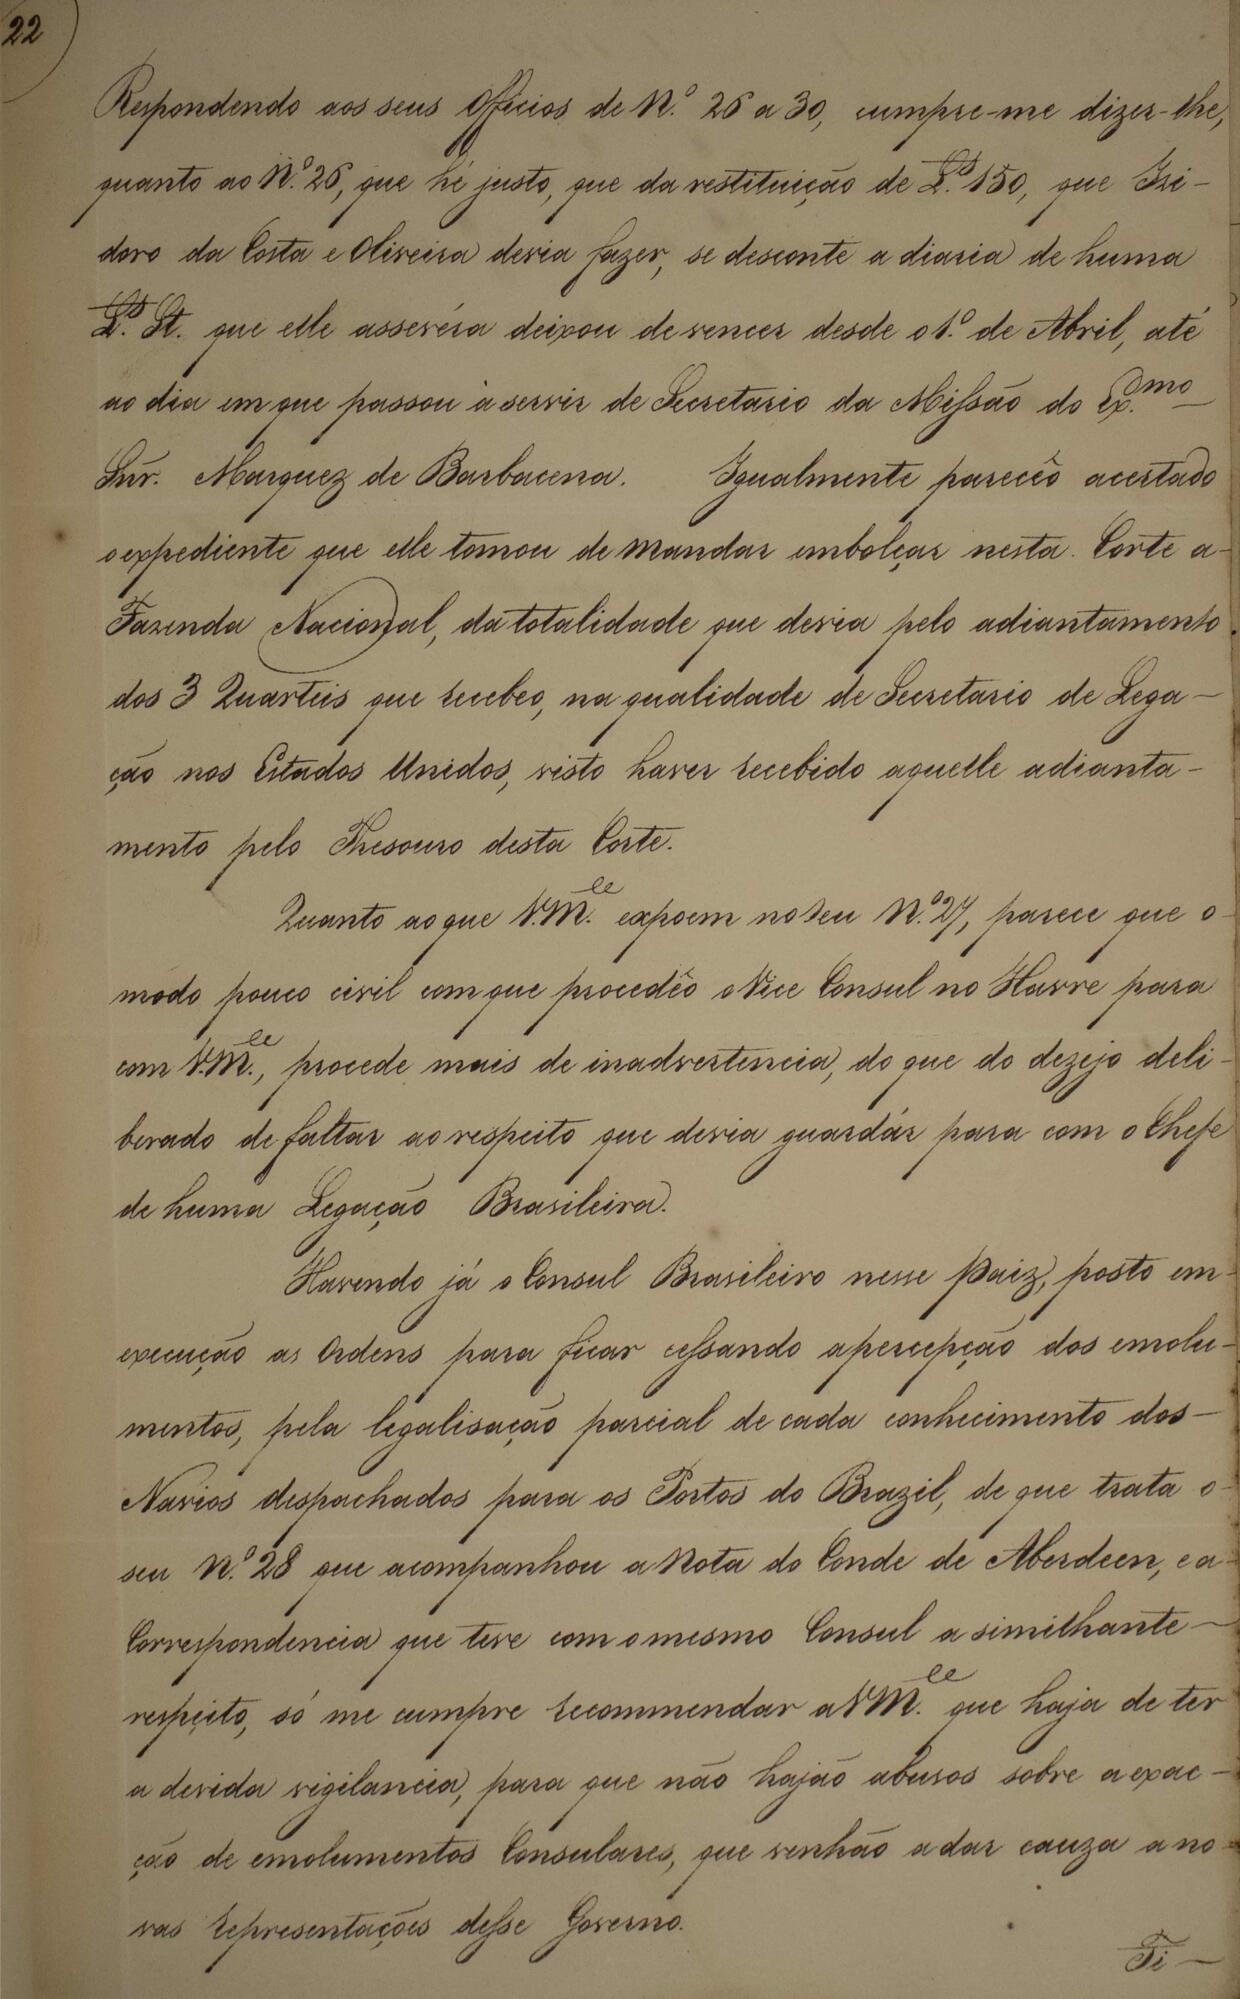 22
Respondendo aos seus Officios de N.º 26 a 30, cumpre-me dizer-lhe,
quanto ao N.º 26, que hé justo, que da restituição de L.ˢ 150, que Izi-
doro da Costa e Oliveira devia fazer, se desconte a diaria de huma
L.ˢ St. que elle asseréra deixou de vencer desde o 1.º de Abril, até
ao dia em que passou à servir de Secretario da Missão do Ex.mo
Snr. Marquez de Barbacena. Igualmente parecêo acertado
o expediente que elle tomou de mandar embolçar nesta Corte a-
Fazenda Nacional, da totalidade que devia pelo adiantamento
dos 3 Quarteis que recebeo, na qualidade de Secretario de Lega-
ção nos Estados Unidos, visto haver recebido aquelle adianta-
mento pelo Thesouro desta Corte.
Quanto ao que V.M.ce expoem no seu N.º 27, parece que o-
modo pouco civil com que procedêo o Vice Consul no Havre para
com V.M.ce, procede mais de inadvertencia, do que do dezejo deli-
berado de faltar ao respeito que devia guardár para com o Chefe
de huma Legação Brasileira.
Havendo já o Consul Brasileiro nesse Paiz, posto em-
execução as Ordens para ficar cessando a percepção dos emolu-
mentos, pela legalisação parcial de cada conhecimento dos-
Navios despachados para os Portos do Brazil, de que trata o-
seu N.º 28 que acompanhou a Nota do Conde de Aberdeen, e a-
Correspondencia que teve com o mesmo Consul a similhante-
respeito, só me cumpre recommendar a VM.ce que haja de ter
a devida vigilancia, para que não hajão abusos sobre a exac-
ção de emolumentos Consulares, que venhão a dar cauza a no-
vas representações desse Governo.
Fi-